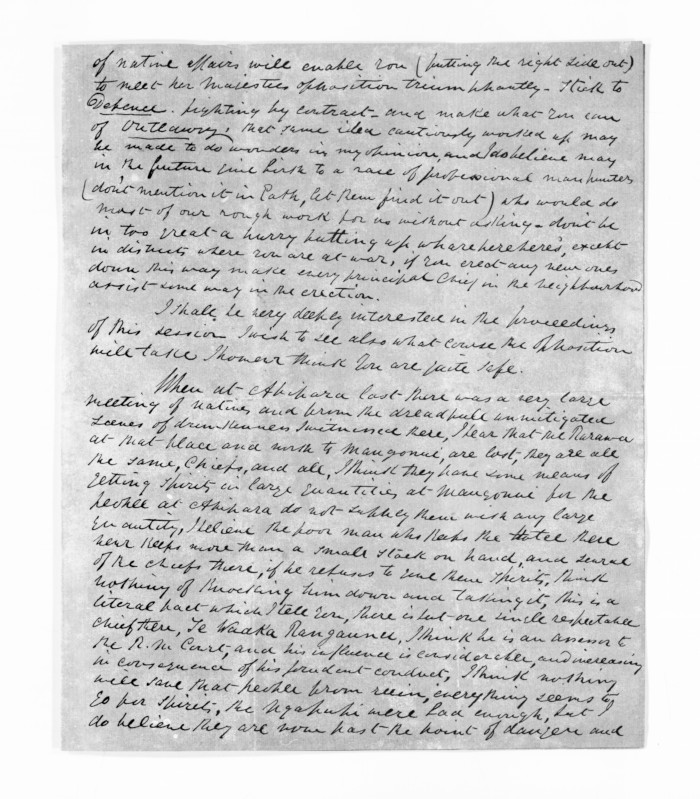 of native affairs will enable you (putting the right side out)
to meet her Majesties opposition triumphantly - Stick to
Defence. fighting by contract - and make what you can
of Outlawry, that same idea cautiously worked up may
be made to do wonders in my opinion, and I do believe may
in the future give birth to a race of professional man hunters
(don't mention it in Parth, let them find it out) who would do
most of our rough work for us without asking - don't be
in too great a hurry putting up wharehereheres, except
in districts where you are at war, if you erect any new ones
down this way make every principal Chief in the neighbourhood
assist some way in the erection.
I shall be very deeply interested in the proceedings
of this session I wish to see also what course the opposition
will take I however think you are quite safe.
When at Ahipara last there was a very large
meeting of natives and from the dreadfull unmitigated
scenes of drunkenness I witnessed there, I fear that the Rarawa
at that place and north to Mangonui, are lost, they are all
the same, Chiefs, and all, I think they have some means of
getting spirits in large quantities at Mangonui for the
people at Ahipara do not supply them with any large
quantity, I believe the poor man who keeps the Hotel there
never keeps more than a small stock on hand, and several
of the chiefs there, if he refuses to give them spirits, think
nothing of knocking him down and taking it, this is a
literal fact which I tell you, there is but one single respectable
chief there, Te Waaka Rangaunu, I think he is an assessor to
the R. M. Court, and his influence is considerable, and increasing
in consequence of his prudent conduct, I think nothing
will save that people from ruin, everything seems to
go for spirits, the Ngapuhi were bad enough, but I
do believe they are now past the point of danger and